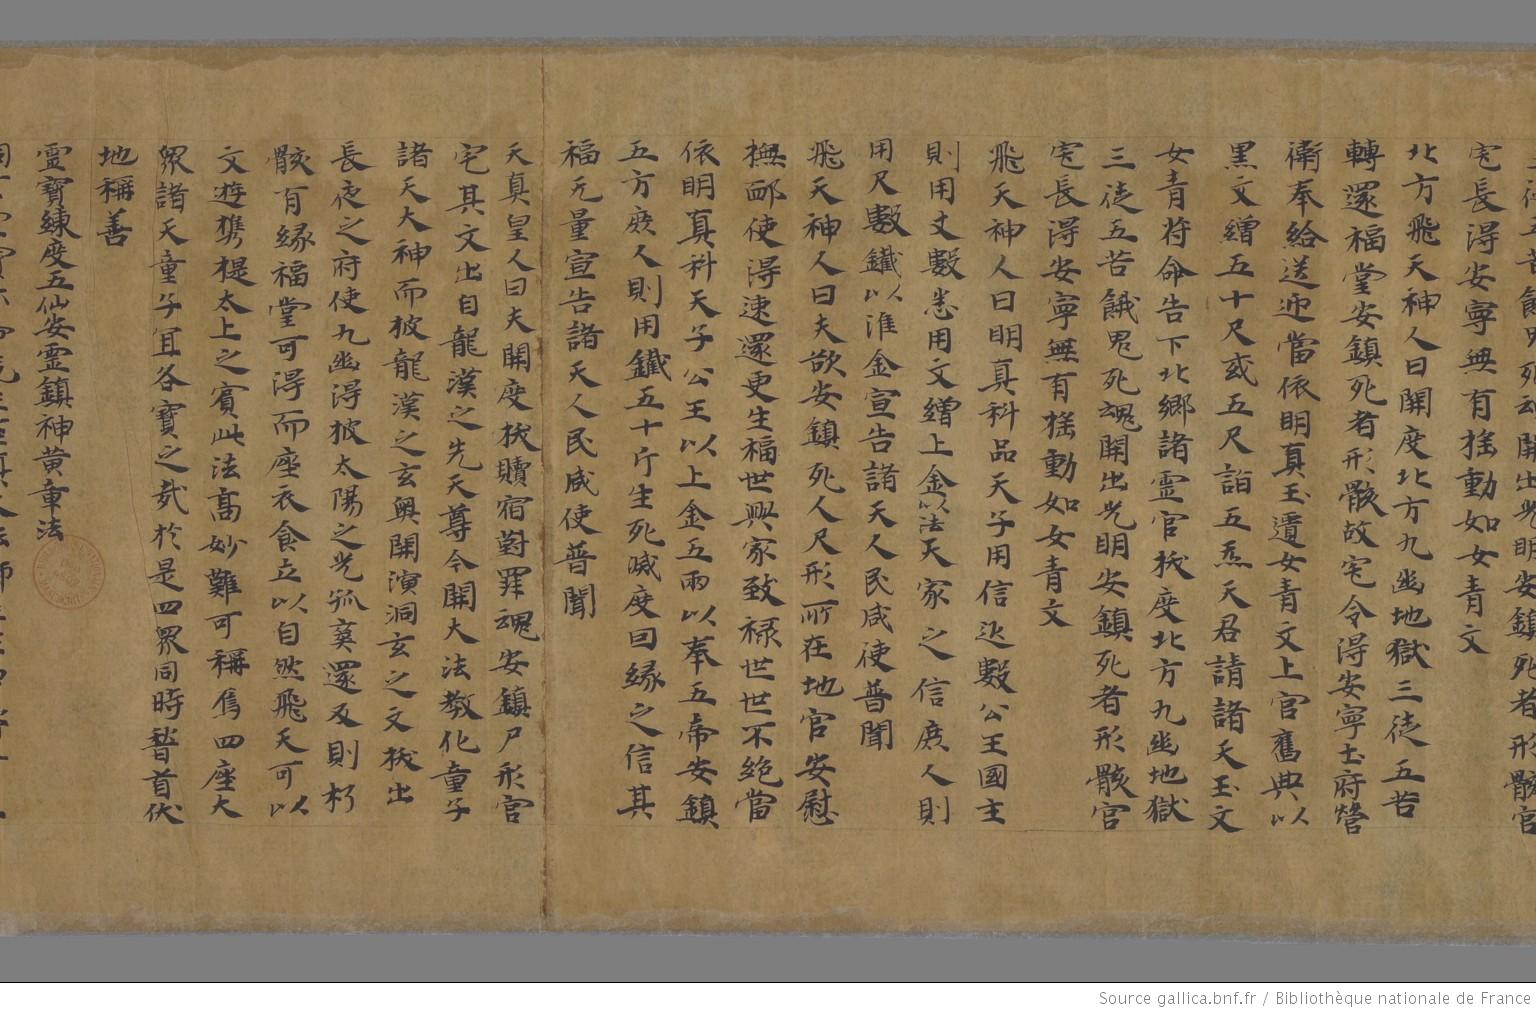 三徒五苦餓鬼死魂開出光明安鎮死者形骸官
宅長得安寧無有搖動如女青文
北方飛天神人曰開度北方九幽地獄三徒五苦
轉還福堂安鎮死者形骸故宅令得安寧玉府營
衛奉給送迎當依明真玉遺女青文上官舊典以
黑文繒五十尺或五尺詣五炁天君請諸天玉文
女青符命告下北鄉諸靈官拔度北方九幽地獄
三徒五苦餓鬼死魂開出光明安鎮死者形骸官
宅長得安寧無有搖動如女青文
飛天神人曰明真科品天子用信迊數公王國主
則用丈數悉用文繒上金以法天家之信庶人則
用尺數鐵以准金宣告諸天人民咸使普聞
飛天神人曰夫欲安鎮死人尺形所在地官安慰
撫卹使得速還更生福世興家致禄世世不絕當
依明真科天子公王以上金五兩以奉五帝安鎮
五方庶人則用鐵五十斤生死咸度曰緣之信其
福无量宣告諸天人民咸使普聞
天真皇人曰夫開度拔贖宿對罪魂安鎮尸形宮
宅其文出自龍漢之先天尊令開大法教化童子
諸天大神而披龍漢之玄奧開演洞玄之文拔出
長夜之府使九幽得披太陽之光孤㷼還反則朽
骸有緣福堂可得而座衣食立以自然飛天可以
文遊携提太上之賓此法高妙難可稱焉四座大
眾諸天童子冝各寶之哉於是四眾同時稽首伏
地稱善
靈寶練度五仙安靈鎮神黃章法